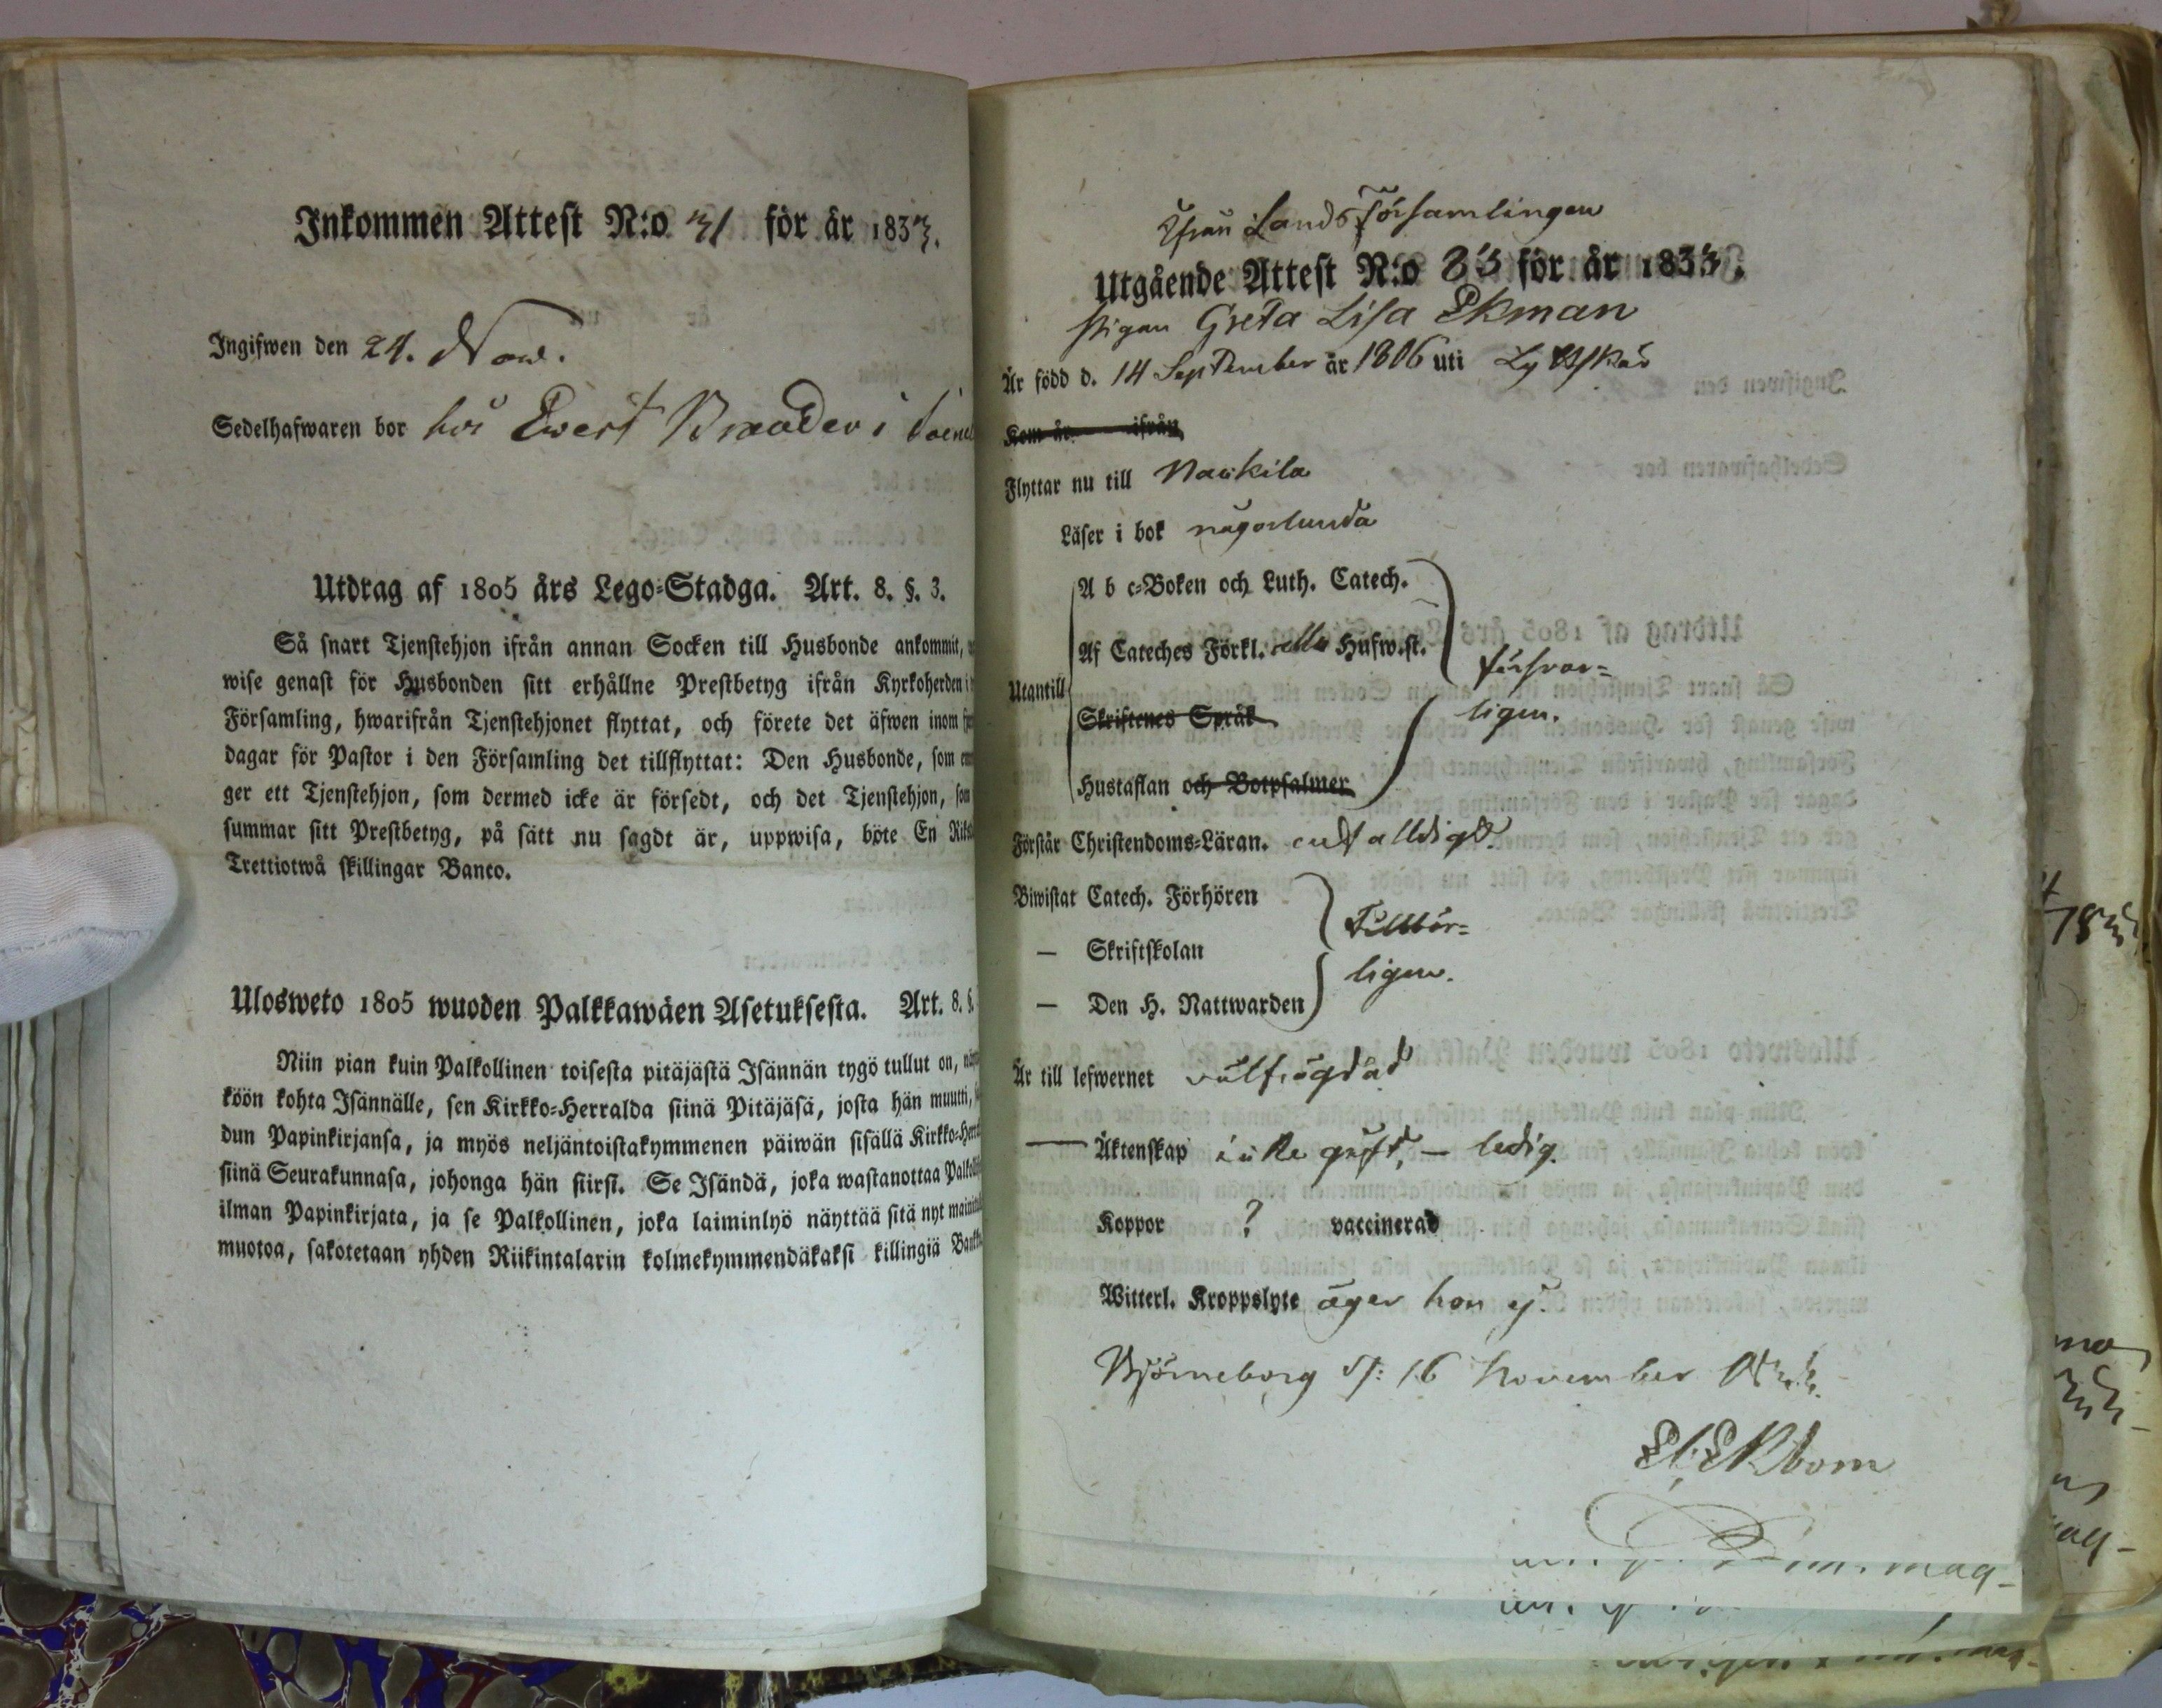 Inkommen Attest N:o 31 för år 1833.
Ingifwen den 24. Nov.
Sedelhafwaren bor hos Ewert Brander i
Utdrag af 1805 års Lego-Stadga. Art. 8. §. 3.
Så snart Tjenstehjon ifrån annan Socken till Husbonde ankommit,
wise genast för Husbonden sitt erhållne Prestbetyg ifrån Kyrkoherden i
Församling, hwarifrån Tjenstehjonet flyttat, och förete det äfwen inom
dagar för Pastor i den Församling det tillflyttat: Den Husbonde, som
ger ett Tjenstehjon, som dermed icke är försedt, och det Tjenstehjon, som
summar sitt Prestbetyg, på sätt nu sagdt är, uppwisa, böte En
Trettiotwå skillingar Banco.
Ulosweto 1805 wuoden Palkkawäen Asetuksesta. Art. 8. §.
Niin pian kuin Palkollinen toisesta pitäjästä Isännän tygö tullut on,
köön kohta Isännälle, sen Kirkko-Herralda siinä Pitäjäsä, josta hän muutti,
dun Papinkirjansa, ja myös neljäntoistakymmenen päiwän sisällä
siinä Seurakunnasa, johonga hän siirsi. Se Isändä, joka wastanottaa
ilman Papinkirjata, ja se Palkollinen, joka laiminlyö näyttää sitä nyt
muotoa, sakotetaan yhden Riikintalarin kolmekymmendäkaksi killingiä
Ifrån Landsförsamlingen
Utgående Attest N:o 83 för år 1833.
Pigan Greta Lisa Ekman
Är född d. 14 September år 1806 uti
Kom år ifrån
Flyttar nu till Nackila
Läser i bok någorlunda
A b c-Boken och Luth. Catech.
Af Cateches Förkl. Hufw.st.
försvar-
Utantill
Skriftenes Språk
ligen.
Hustaflan och Botpsalmer
Förstår Christendoms-Läran. enfalldigt.
Biwistat Catech. Förhören
Tillbör-
— Skriftskolan
ligen.
— Den H. Nattwarden
Är till lefwernet välfrägdad
— Äktenskap icke gift, — ledig.
Koppor ? vaccinerad
Witterl. Kroppslyte äger hon ej.
Björneborg d: 16 November 1833.
Ekbom